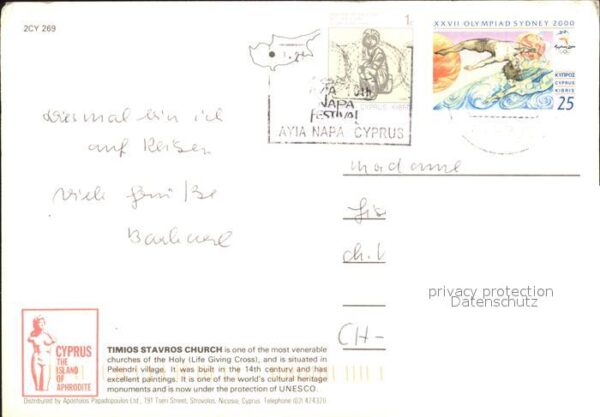 2CY 269
XXVII OLYMPIAD SYDNEY 2000
ΚΥΠΡΟΣ
CYPRUS
KIBRIS
25
1
CYPRUS KIBRIS
NAPA
FESTIVAL
AYIA NAPA CYPRUS
Diesmal bin ich
auf Reisen
Viele Grüsse
Madame
CH-
privacy protection
Datenschutz
CYPRUS
THE
ISLAND
OF
APHRODITE
TIMIOS STAVROS CHURCH is one of the most venerable
churches of the Holy (Life Giving Cross), and is situated in
Pelendri village. It was built in the 14th century and has
excellent paintings. It is one of the world's cultural heritage
monuments and is now under the protection of UNESCO.
Distributed by Apostolos Papadopoulos Ltd., 191 Tseri Street, Strovolos, Nicosia, Cyprus. Telephone (02) 424320